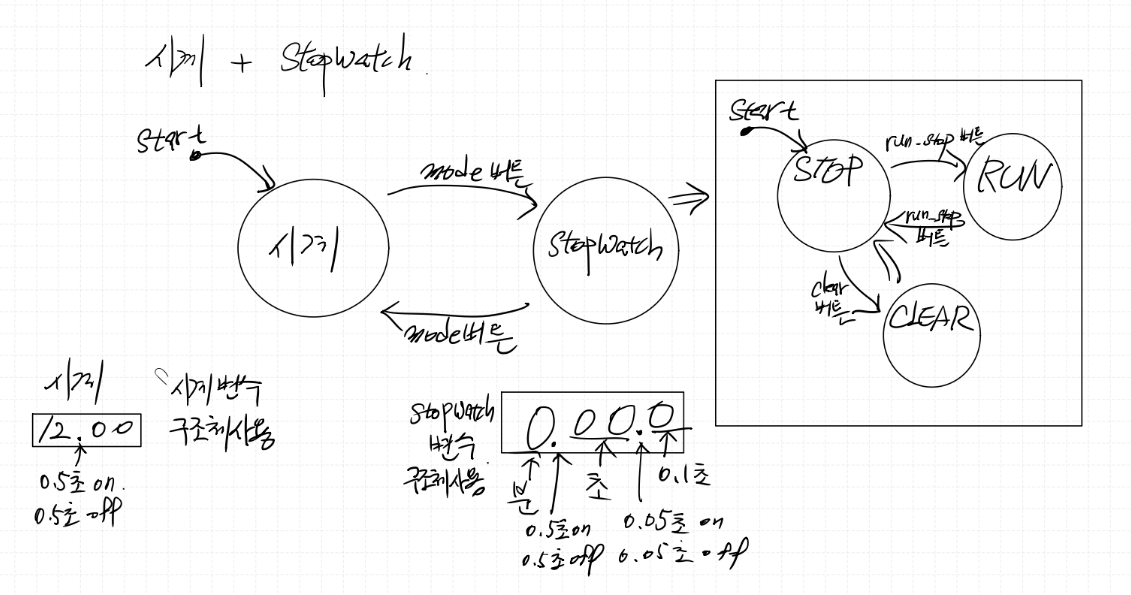 시계 + Stopwatch
start
시계
mode 버튼
mode버튼
Stopwatch
start
STOP
run_stop 버튼
RUN
run_stop
버튼
clear
버튼
CLEAR
시계
12.00
0.5초 on.
0.5초 off
시계변수
구조체사용
stopwatch
변수
구조체사용
0.00.0
분
초
0.1초
0.5초on
0.5초off
0.05초 on
0.05초 off